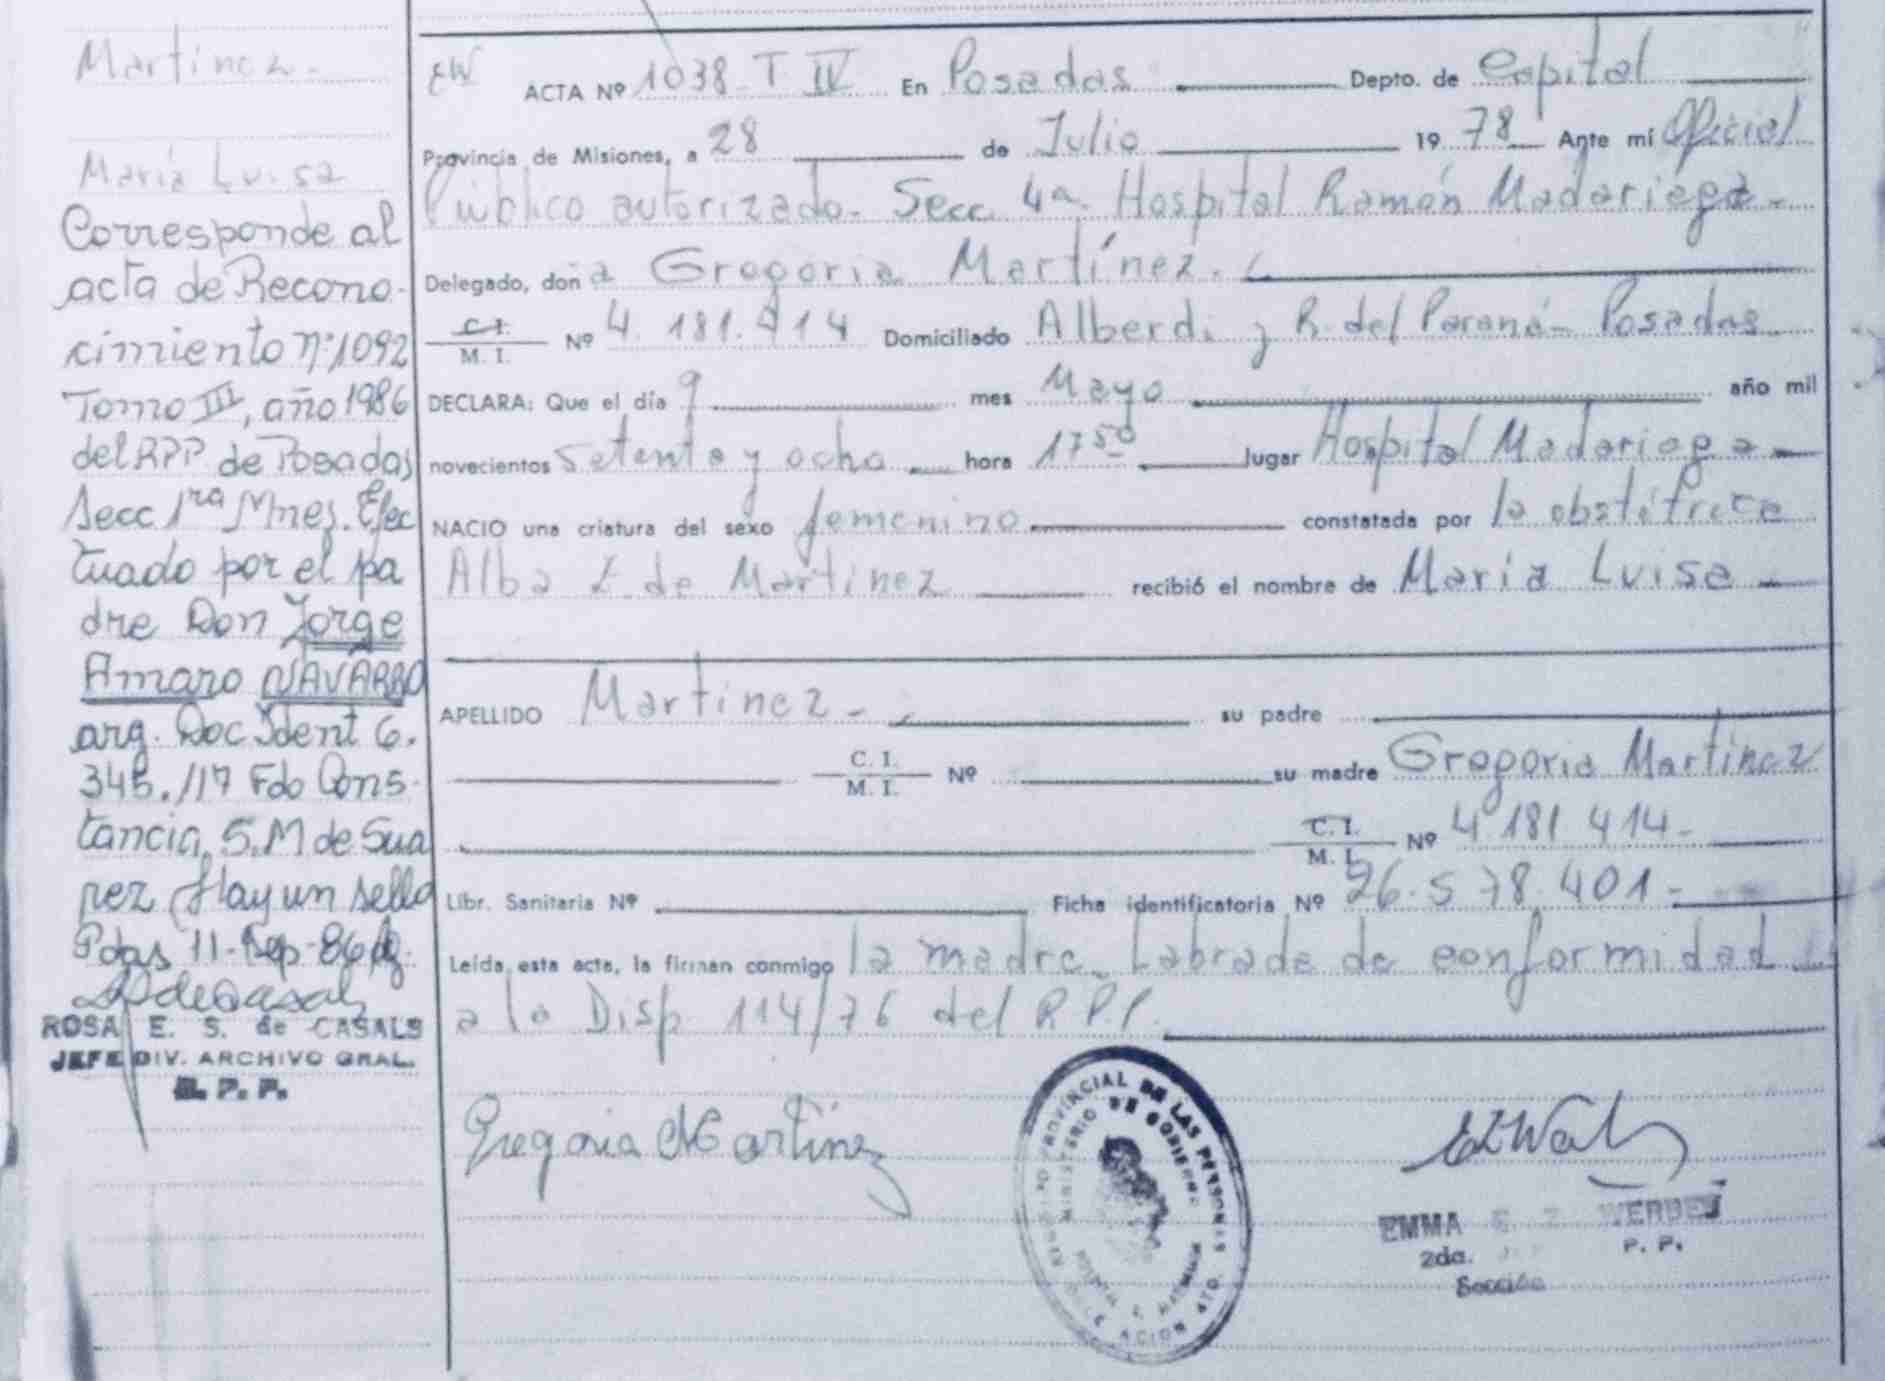 Martinez.
María Luisa
Corresponde al
acta de Recono-
cimiento nº:1092
Tomo III, año 1986
del RPP de Posadas
Secc 1ra Mnes. Efec
tuado por el pa
dre Don Jorge
Amaro NAVARRO
arg. Doc Ident 6.
345.117 Fdo Cons-
tancia, S.M de Sua
rez Hay un sello
Pdas 11-Sep-86
ROSA E. S. de CASALS
JEFE DIV. ARCHIVO GRAL.
R. P. P.
EW ACTA Nº 1038 T IV En Posadas Depto. de Capital
Provincia de Misiones, a 28 de Julio 1978 Ante mí Oficial
Público autorizado. Secc. 4a. Hospital Ramón Madariaga.
Delegado, doña Gregoria Martínez.
C. I. / M. I. Nº 4.181.414 Domiciliado Alberdi y R. del Paraná - Posadas
DECLARA: Que el día 9 mes Mayo año mil
novecientos setenta y ocho hora 17 50 lugar Hospital Madariaga
NACIO una criatura del sexo femenino constatada por la obstétrica
Alba Z. de Martinez recibió el nombre de María Luisa
APELLIDO Martinez - su padre
C. I. / M. I. Nº su madre Gregoria Martínez
C. I. / M. I. Nº 4 181 414-
Libr. Sanitaria Nº Ficha identificatoria Nº 26.578.401-
Leída esta acta, la firman conmigo la madre. Labrada de conformidad
a la Disp 114/76 del R.P.P.
Gregoria Martinez
PROVINCIAL DE LAS PERSONAS
MINISTERIO DE GOBIERNO
EMMA E. Z. WERDE
2da. P. P.
Sección